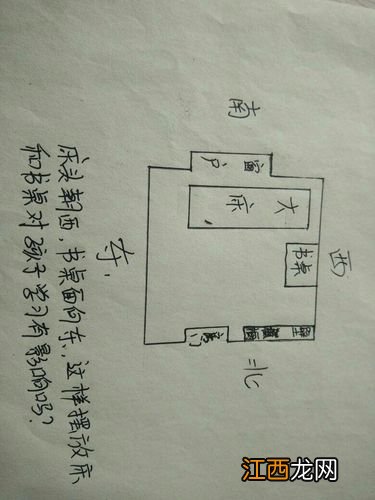 西
书桌
大床
窗户
南
北
房门
东
床头朝西,书桌面向东,这样摆放床
和书桌对孩子学习有影响吗?
江西龙网